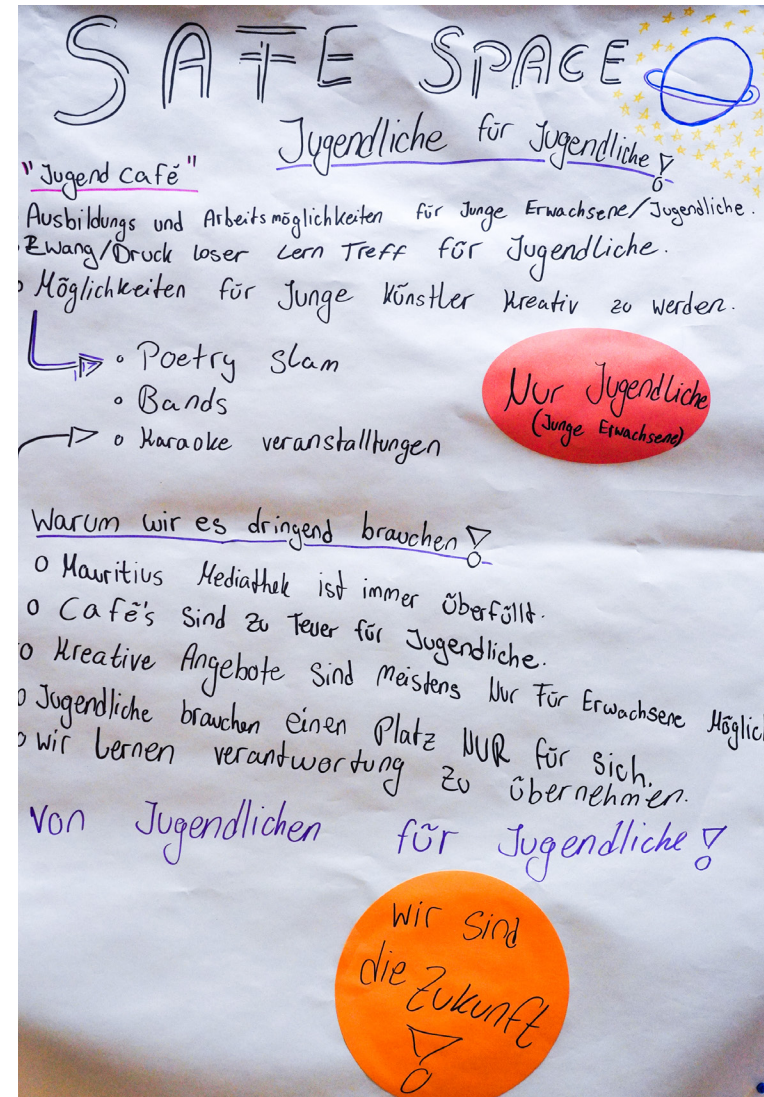 SAFE SPACE
Jugendliche für Jugendliche!
"Jugend café"
Ausbildungs und Arbeitsmöglichkeiten für Junge Erwachsene/Jugendliche.
Zwang/Druck loser Lern Treff für Jugendliche.
o Möglichkeiten für Junge Künstler Kreativ zu werden.
o Poetry Slam
o Bands
o Karaoke veranstalltungen
Nur Jugendliche
(Junge Erwachsene)
Warum wir es dringend brauchen!
o Mauritius Mediathek ist immer überfüllt.
o Café's sind zu Teuer für Jugendliche.
o Kreative Angebote sind meistens Nur Für Erwachsene Möglic
o Jugendliche brauchen einen Platz NUR für sich.
o wir Lernen verantwortung zu übernehmen.
von Jugendlichen für Jugendliche!
wir sind
die Zukunft
!